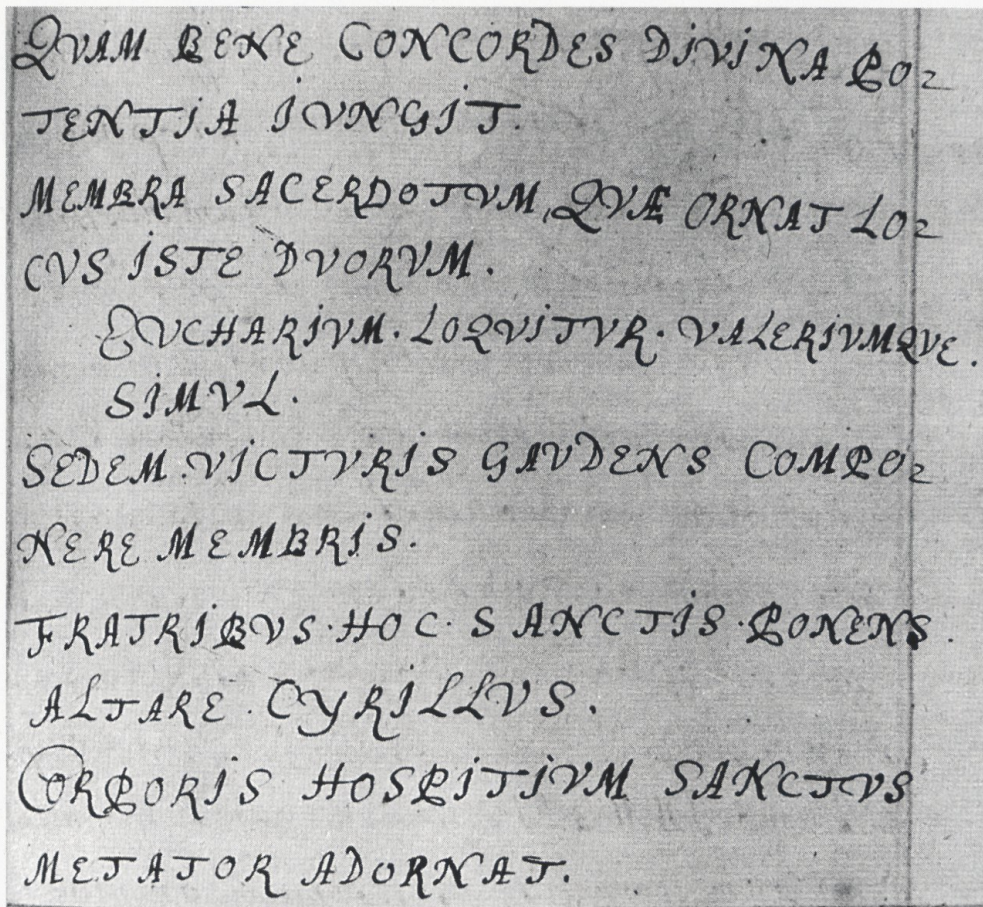 QVAM BENE CONCORDES DIVINA PO=
TENTIA IVNGIT.
MEMBRA SACERDOTVM, QVÆ ORNAT LO=
CVS ISTE DVORVM.
EVCHARIVM. LOQVITVR. VALERIVMQVE.
SIMVL.
SEDEM. VICTVRIS GAVDENS COMPO=
NERE MEMBRIS.
FRATRIBVS. HOC. SANCTIS. PONENS.
ALTARE. CYRILLVS.
CORPORIS HOSPITIVM SANCTVS
METATOR ADORNAT.